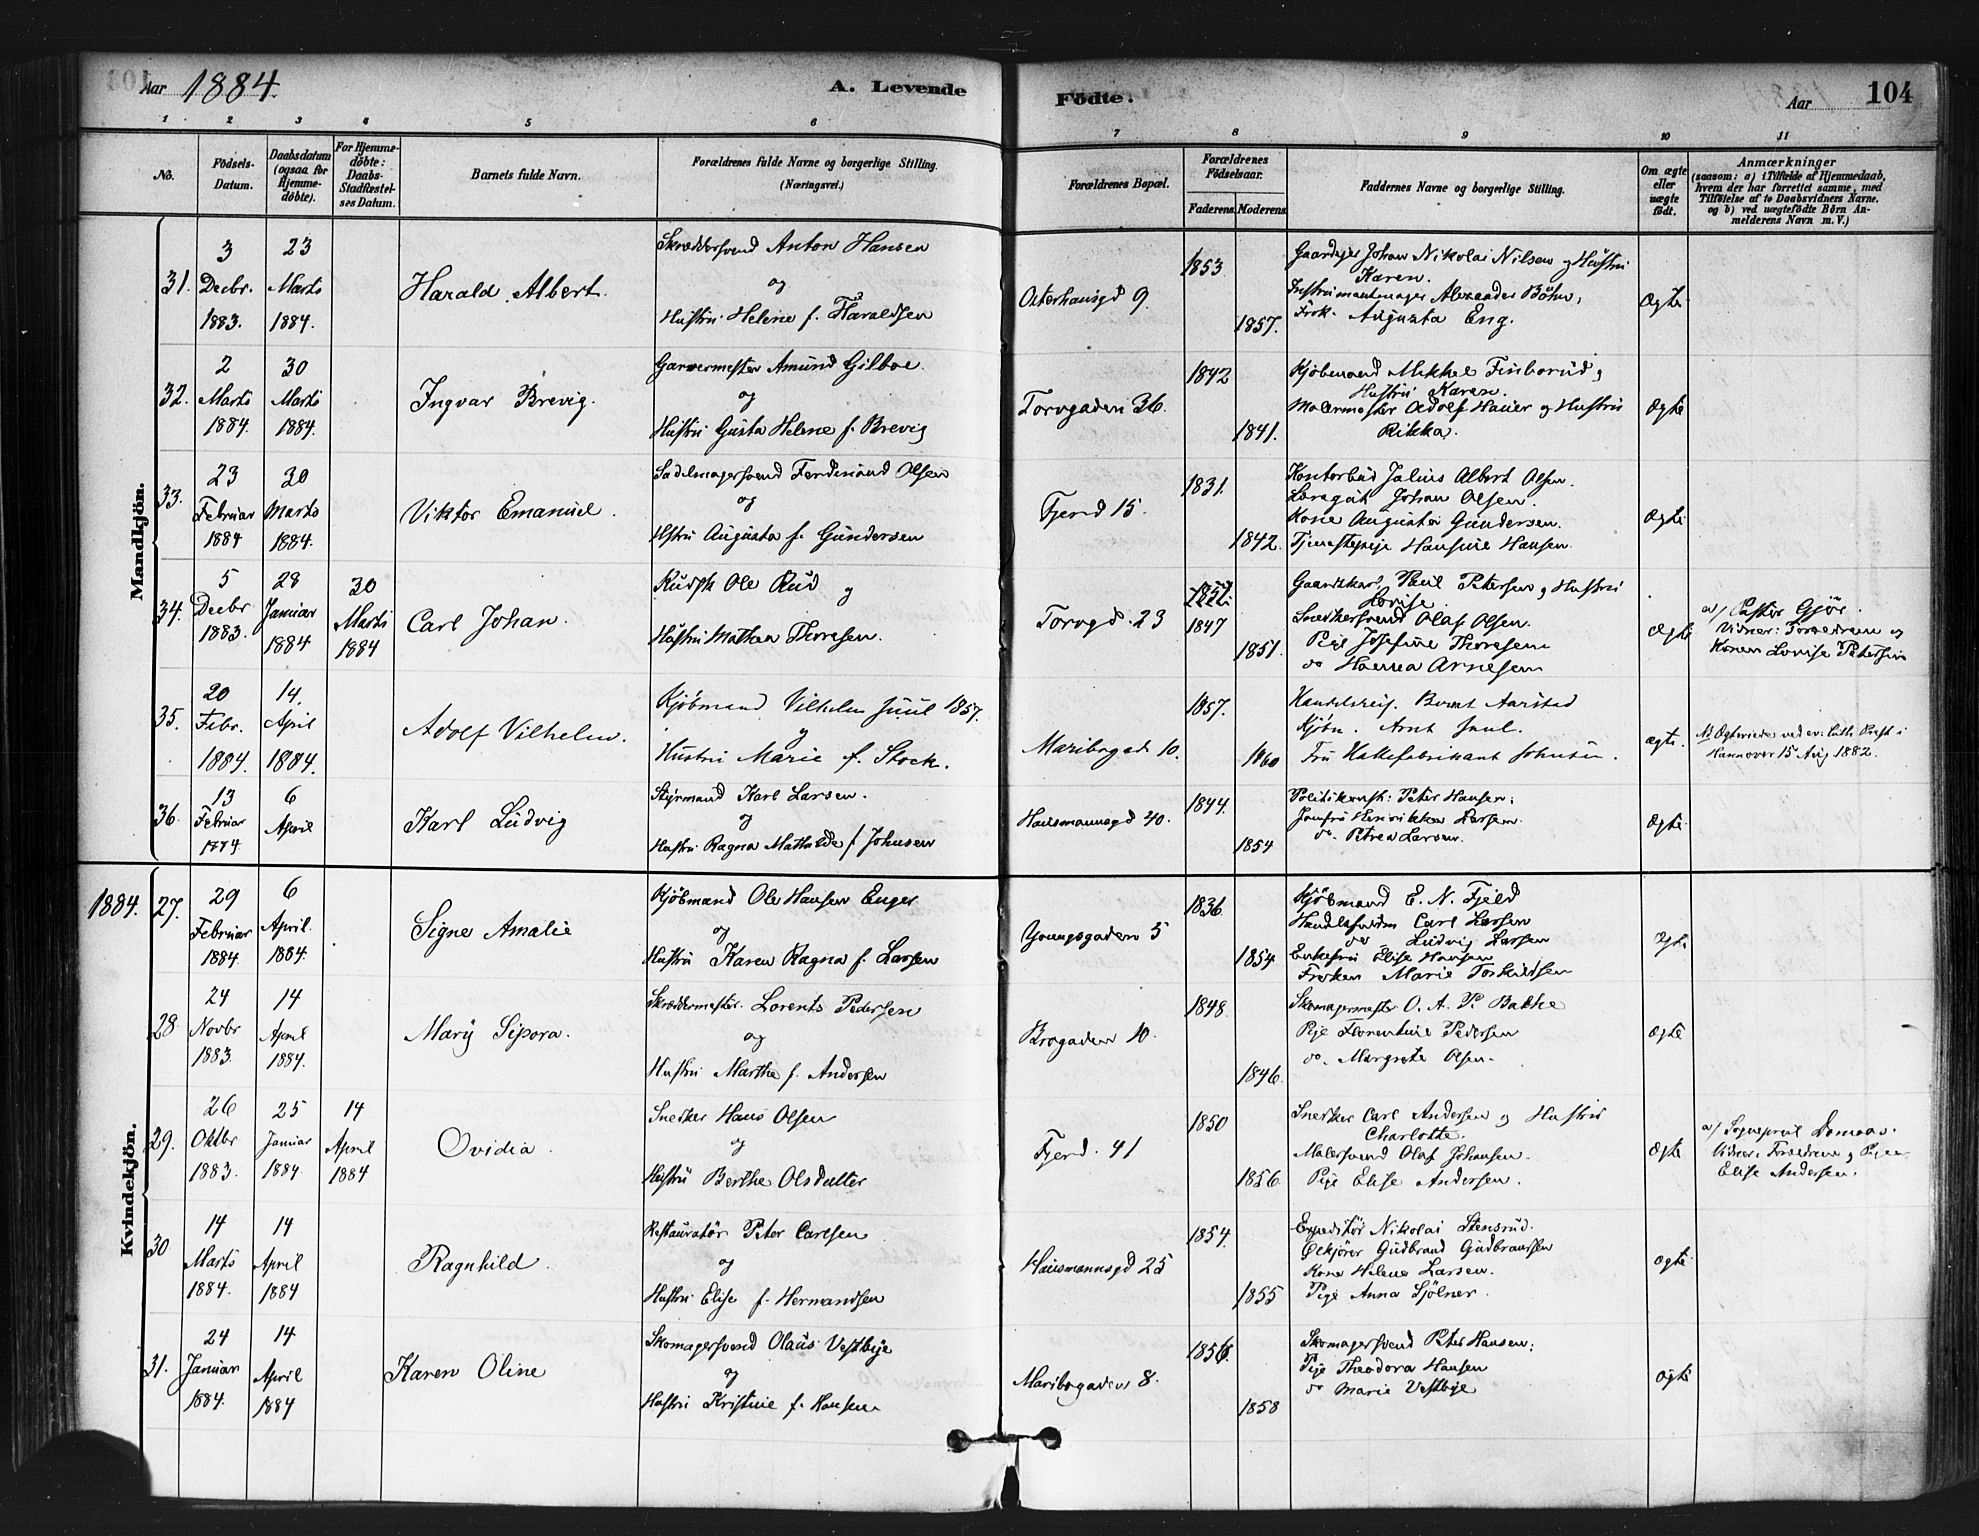 Aar 1884.
A. Levende
Födte.
Aar
104
1 2 3 4 5 6 7 8 9 10 11
No.
Födsels-
Datum.
Daabsdatum
(ogsaa for
Hjemme-
döbte).
For Hjemme-
döbte:
Daabs-
Stadfæstel-
ses Datum.
Barnets fulde Navn.
Forældrenes fulde Navne og borgerlige Stilling.
(Næringsvei.)
Forældrenes Bopæl.
Forældrenes
Födselsaar.
Faderens. Moderens.
Faddernes Navne og borgerlige Stilling.
Om ægte
eller
uægte
födt.
Anmærkninger
(saasom: a) i Tilfælde af Hjemmedaab,
hvem der har forrettet samme, med
Tilföielse af to Daabsvidners Navne.
og b) ved uægtefödte Börn An-
melderens Navn m. V.)
Mandkjön.
31.
3
Decbr.
1883.
23
Marts
1884.
Harald Albert.
Skræddersvend Anton Hansen
og
Hustru Helene f. Haraldsen
Osterhausgd 9.
1853
1857.
Gaardejer Johan Nikolai Nilsen og Hustru
Karen.
Instrumentmager Alexander Böhn,
Frök. Augusta Eng.
Ægte
32.
2
Marts
1884.
30
Marts
1884.
Ingvar Brevig.
Garvermester Amund Gilboe.
og
Hustru Gusta Helene f. Brevig
Torvgaden 36.
1842
1841.
Kjöbmand Mikkel Finborud og
Hustru Karen.
Malermester Adolf Hauer og Hustru
Rikka.
Ægte
33.
23
Februar
1884
30
Marts
1884.
Viktor Emanuel.
Sadelmagersvend Ferdinand Olsen
og
Hstru Augusta f. Gundersen
Fjerd 15.
1831.
1842.
Kontorbud Julius Albert Olsen.
Johan Olsen.
Kone Augusta Gundersen.
Tjenestepige Hansine Hansen.
Ægte
34.
5
Decbr
1883.
28
Januar
1884
30
Marts
1884
Carl Johan.
Kudsk Ole Rud og
Hustru Mathea Thoresen.
Torvgd. 23
1847
1851.
Gaardskarl Paul Petersen og Hustru
Lovise.
Snedkersvend Olaf Olsen.
Pige Josefine Thoresen
do Hanna Arnesen
Ægte
a/ Pastor Gjör.
Vidner: Forældrene og
Konen Lovise Petersen
35.
20
Febr.
1884.
14.
April
1884.
Adolf Vilhelm.
Kjöbmand Vilhelm Juul 1857.
og
Hustru Marie f. Stock.
Maribogad 10.
1857.
1860
Handelsreis. Bernt Aarstad
Kjöbm. Arnt Juul.
Fru Hattefabrikant Johnsen.
ægte.
Hannover 15 Aug 1882.
36.
13
Februar
1884
6
April
Karl Ludvig
Styrmand Karl Larsen.
og
Hustru Ragna Mathilde f Johnsen
Hausmannsgd 40.
1844.
1854
Politikonst: Peter Hansen;
Jomfru Henrikke Larsen.
do. Petrea Larsen.
Ægte
Kvindekjön.
1884.
27.
29
Februar
1884.
6
April.
1884.
Signe Amalie
Kjöbmand Ole Hansen Enger
og
Hustru Karen Ragna f. Larsen
Youngsgaden 5
1836
1854
Kjöbmand E. N. Fjeld
Carl Larsen
do Ludvig Larsen
Enkefru Elise Hansen
Fröken Marie Torkildsen
Ægte
28
24
Novbr
1883.
14
April
1884.
Mary Sipora.
Skræddermester. Lorents Pedersen
og
Hustru Marthe f. Andersen
Brogaden 10.
1848
1846.
Skomagermester O. A. P. Bakke
Pige Florentine Pedersen
do. Margrete Olsen.
Ægte
29.
26
Oktbr
1883.
25
Januar
1884.
14
April
1884
Ovidia.
Snedker Hans Olsen
og
Hustru Berthe Olsdatter
Fjerd. 41
1850
1856.
Snedker Carl Andersen og Hustru
Charlotte.
Malersvend Olaf Johansen.
Pige Elise Andersen.
Ægte
a/ Sogneprest Domaas.
Vidner: Forældrene og Pigen
Elise Andersen.
30
14
Marts
1884.
14
April
1884
Ragnhild.
Restauratör Peter Carlsen
og
Hustru Elise f. Hermandsen
Hausmannsgd 25
1854.
1855
Expeditör Nikolai Stensrud.
Ölkjörer Gudbrand Gudbrandsen
Kone Helene Larsen.
Pige Anna Sjölner.
ægte
31.
24
Januar
1884.
14
April
1884
Karen Oline
Skomagersvend Olaus Vestbye
og
Hustru Kristine f. Hansen
Maribogaden 8.
1856.
1858
Skomagersvend Peter Hansen;
Pige Theodora Hansen
do Marie Vestbye
Ægte